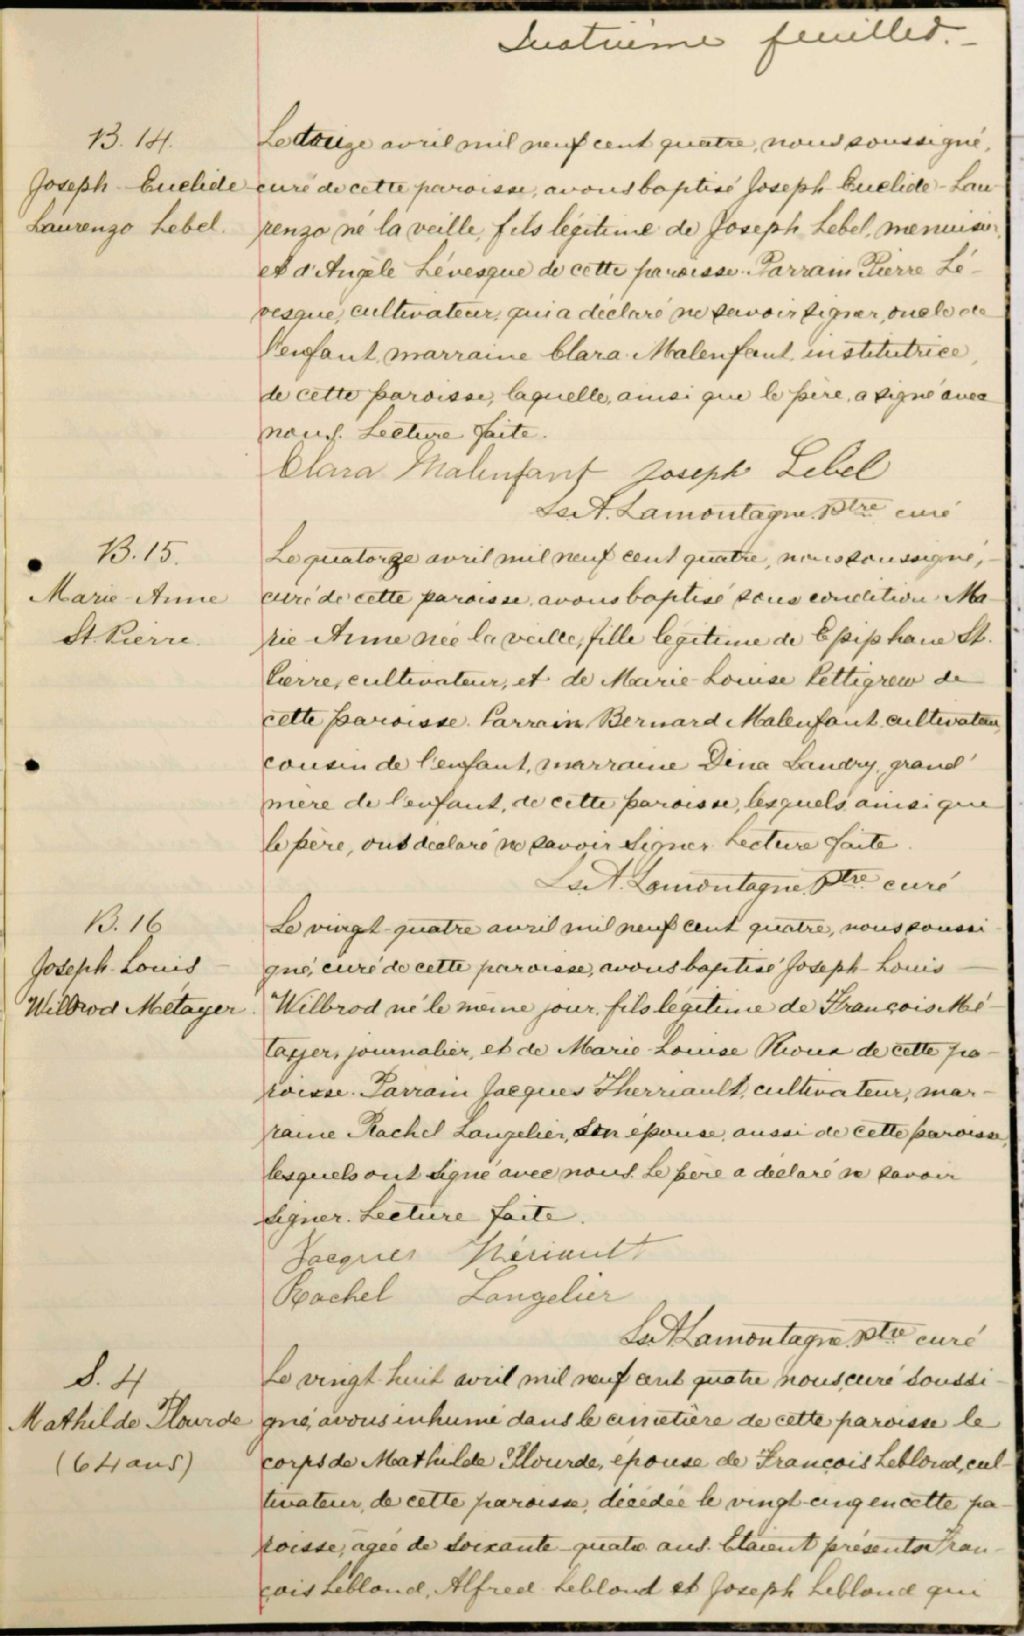 Quatrième feuillet.-
B. 14.
Joseph-Euclide
Laurenzo Lebel.
Le avril mil neuf cent quatre, nous soussigné,
curé de cette paroisse, avons baptisé Joseph-Euclide-Lau-
renzo né la veille, fils légitime de Joseph Lebel, menuisier,
et d'Angèle Lévesque de cette paroisse. Parrain Pierre Lé-
vesque, cultivateur, qui a déclaré ne savoir signer, oncle de
l'enfant, marraine Clara Malenfant, institutrice,
de cette paroisse, laquelle, ainsi que le père, a signé avec
nous. Lecture faite.
Clara Malenfant Joseph Lebel
Ls.A. Lamontagne, ptre curé
B. 15.
Marie-Anne
St. Pierre.
Le quatorze avril mil neuf cent quatre, nous soussigné,
curé de cette paroisse, avons baptisé sous condition Ma-
rie-Anne née la veille, fille légitime de Epiphane St.
Pierre, cultivateur, et de Marie-Louise Pettigrew de
cette paroisse. Parrain Bernard Malenfant, cultivateur,
cousin de l'enfant, marraine Dina Landry, grand'
mère de l'enfant, de cette paroisse, lesquels ainsi que
le père, ont déclaré ne savoir signer. Lecture faite.
Ls.A. Lamontagne, ptre curé
B. 16
Joseph-Louis-
Wilbrod Métayer.
Le vingt-quatre avril mil neuf cent quatre, nous soussi-
gné, curé de cette paroisse, avons baptisé Joseph-Louis-
Wilbrod né le même jour, fils légitime de François Mé-
tayer, journalier, et de Marie-Louise Rioux de cette pa-
roisse. Parrain Jacques Therriault, cultivateur, mar-
raine Rachel Langelier, son épouse, aussi de cette paroisse,
lesquels ont signé avec nous. Le père a déclaré ne savoir
signer. Lecture faite.
Jacques Thériault
Rachel Langelier
Ls.A. Lamontagne, ptre curé
S. 4
Mathilde Plourde
(64 ans)
Le vingt-huit avril mil neuf cent quatre nous, curé soussi-
gné, avons inhumé dans le cimetière de cette paroisse le
corps de Mathilde Plourde, épouse de François Leblond, cul-
tivateur, de cette paroisse, décédée le vingt-cinq en cette pa-
roisse, agée de soixante-quatre ans. Etaient présents Fran-
çois Leblond, Alfred Leblond et Joseph Leblond qui